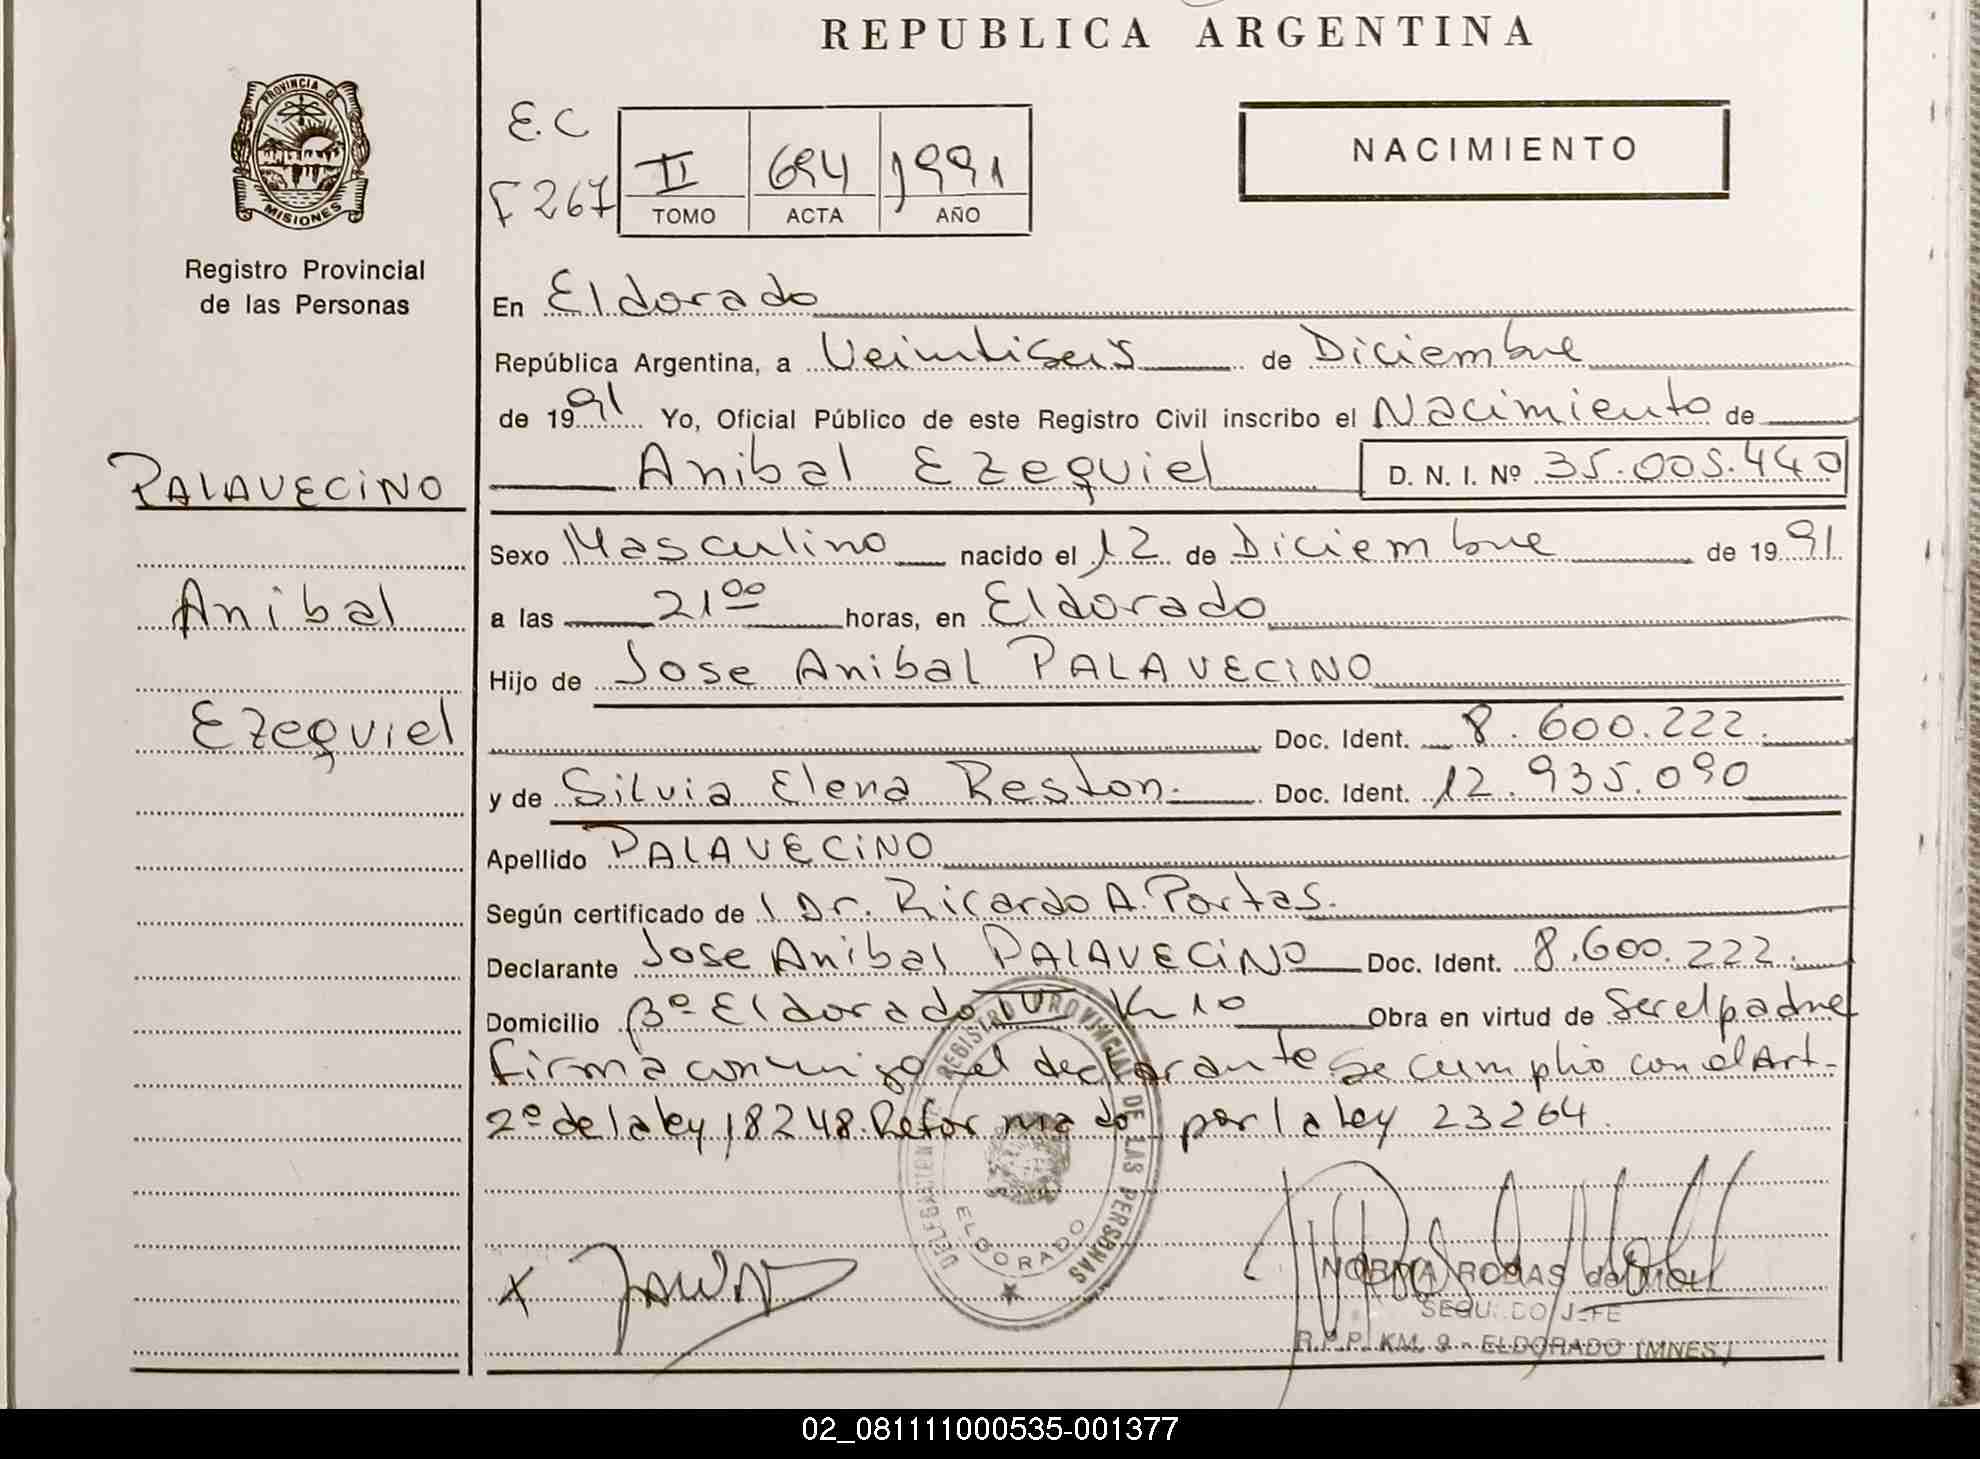 REPUBLICA ARGENTINA
PROVINCIA DE
MISIONES
Registro Provincial
de las Personas
E.C
F 267
II 694 1991
TOMO ACTA AÑO
NACIMIENTO
En Eldorado
República Argentina, a Veintiseis de Diciembre
de 1991 Yo, Oficial Público de este Registro Civil inscribo el Nacimiento de
PALAVECINO
Anibal Ezequiel D. N. I. Nº 35.005.440
Sexo Masculino nacido el 12 de Diciembre de 1991
Anibal
a las 2100 horas, en Eldorado
Hijo de Jose Anibal PALAVECINO
Ezequiel
Doc. Ident. 8.600.222.
y de Silvia Elena Reston. Doc. Ident. 12.935.090
Apellido PALAVECINO
Según certificado de 1 Dr. Ricardo A. Portas.
Declarante Jose Anibal PALAVECINO Doc. Ident. 8.600.222.
Domicilio Bº Eldorado IV K 10 Obra en virtud de Ser el padre
firma conmigo el declarante se cumplio con el Art-
2º de la ley 18248. Reformado por la ley 23264.
REGISTRO PROVINCIAL DE LAS PERSONAS
ELDORADO
X
NORMA RODAS de MOLL
SEGUNDO JEFE
R.P.P. KM. 9 - ELDORADO (MNES.)
02_081111000535-001377